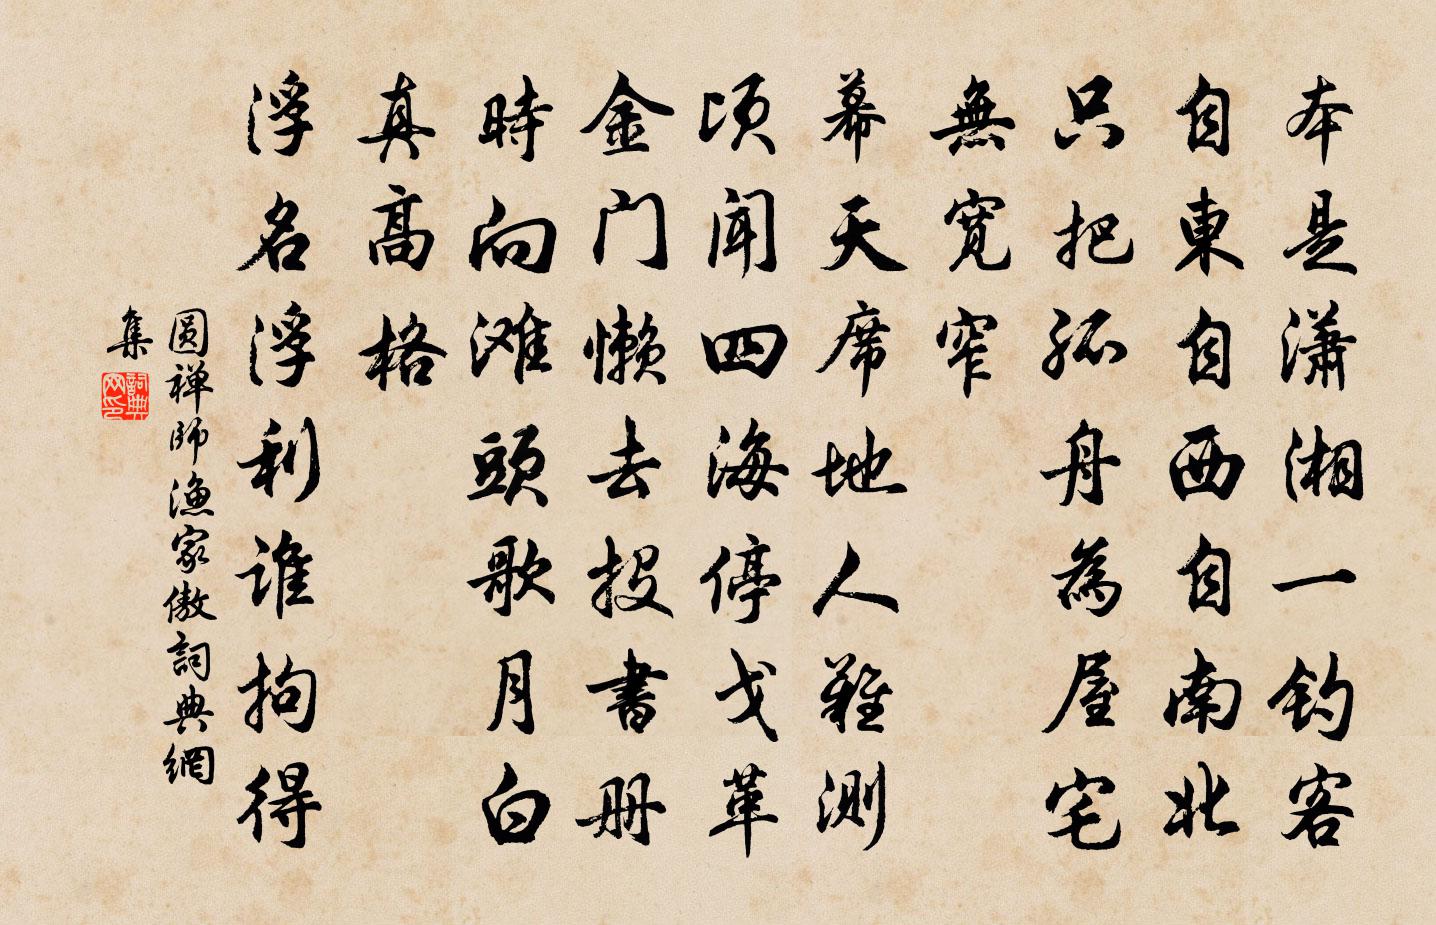 本是瀟湘一釣客
自東自西自南北
只把孤舟為屋宅
無寬窄
幕天席地人難測
頃聞四海停戈革
金门懶去投書册
時向滩頭歌月白
真高格
浮名浮利谁拘得
圆禅師漁家傲詞典網
集
詞典网印